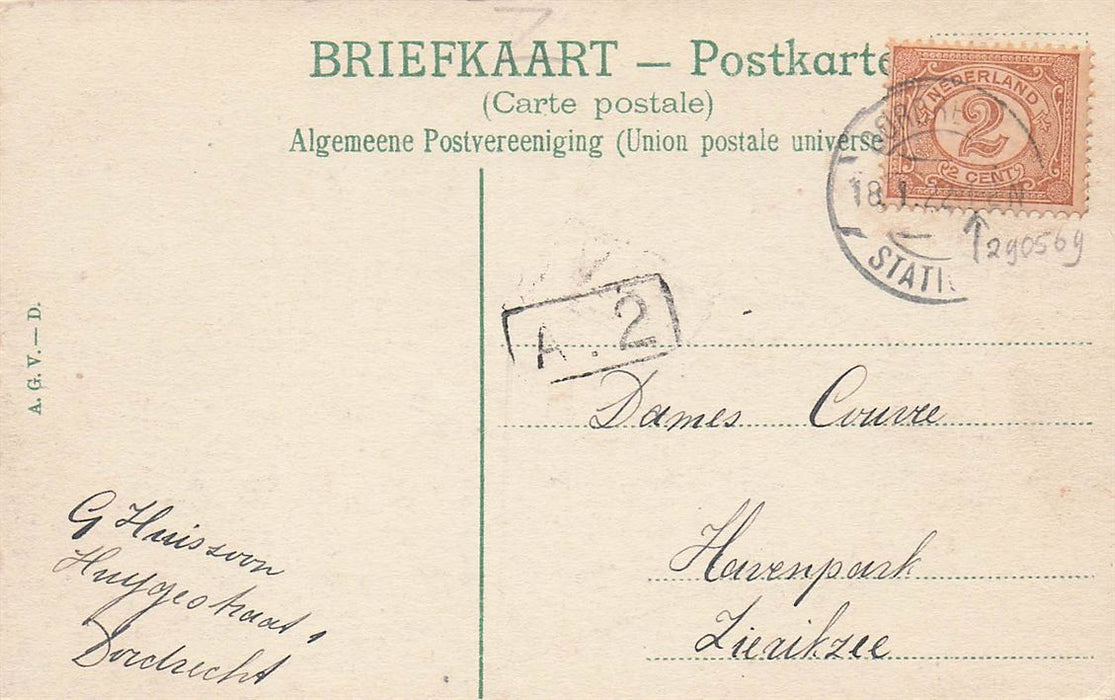 BRIEFKAART — Postkarte
(Carte postale)
Algemeene Postvereeniging (Union postale universe
NEDERLAND
2
2 CENT
18.1.22
STATI
290569
A.2
A. G. V. — D.
Dames Couvée
Havenpark
Zierikzee
G Huissoon
Huygestraat 1
Dordrecht